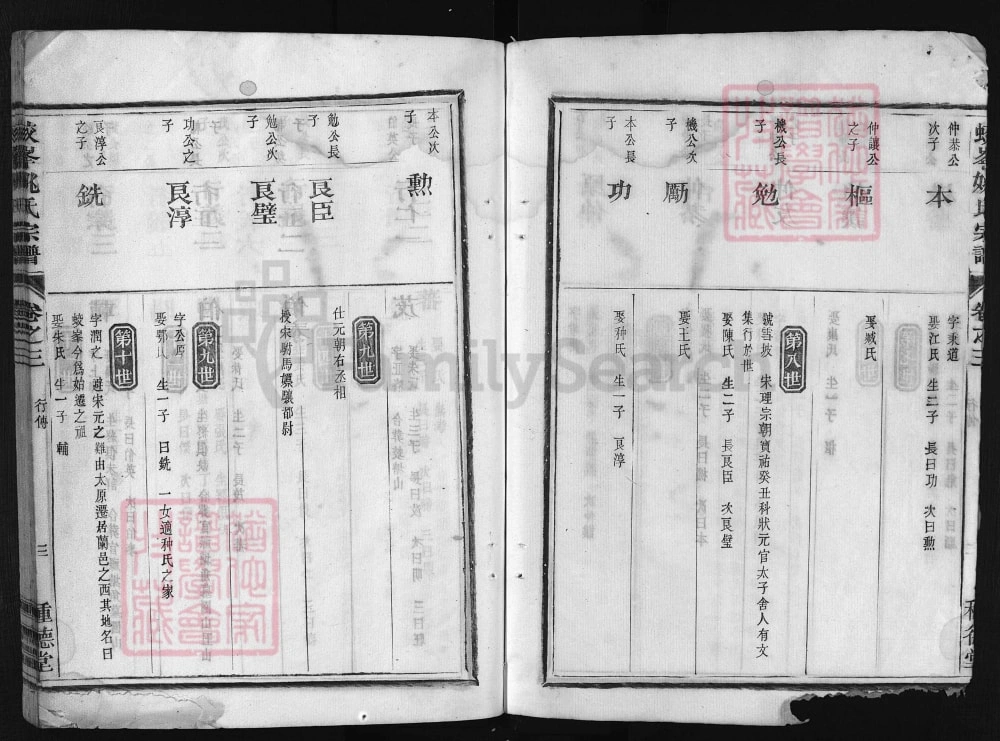 仲恭公
次子
本
字秉道
娶江氏 生二子 長曰功 次曰勲
仲讓公
之子
樞
娶臧氏
第八世
機公長
子
勉
號雪坡 宋理宗朝寶祐癸丑科狀元官太子舍人有文
集行於世
娶陳氏 生二子 長艮臣 次艮璧
機公次
子
勵
娶王氏
本公長
子
功
娶种氏 生一子 艮淳
本公次
子
勲
第九世
仕元朝右丞相
勉公長
子
艮臣
授宋駙馬驃驥都尉
勉公次
子
艮璧
第九世
功公之
子
艮淳
字公厚
娶鄂氏 生一子 曰銑 一女適种氏之家
第十世
艮淳公
之子
銑
字潤之 避宋元之難由太原遷居蘭邑之西其地名曰
蛟峯今為始遷之祖
娶朱氏 生一子 輔
蛟峯姚氏宗譜
卷之三
行傳
三
種德堂